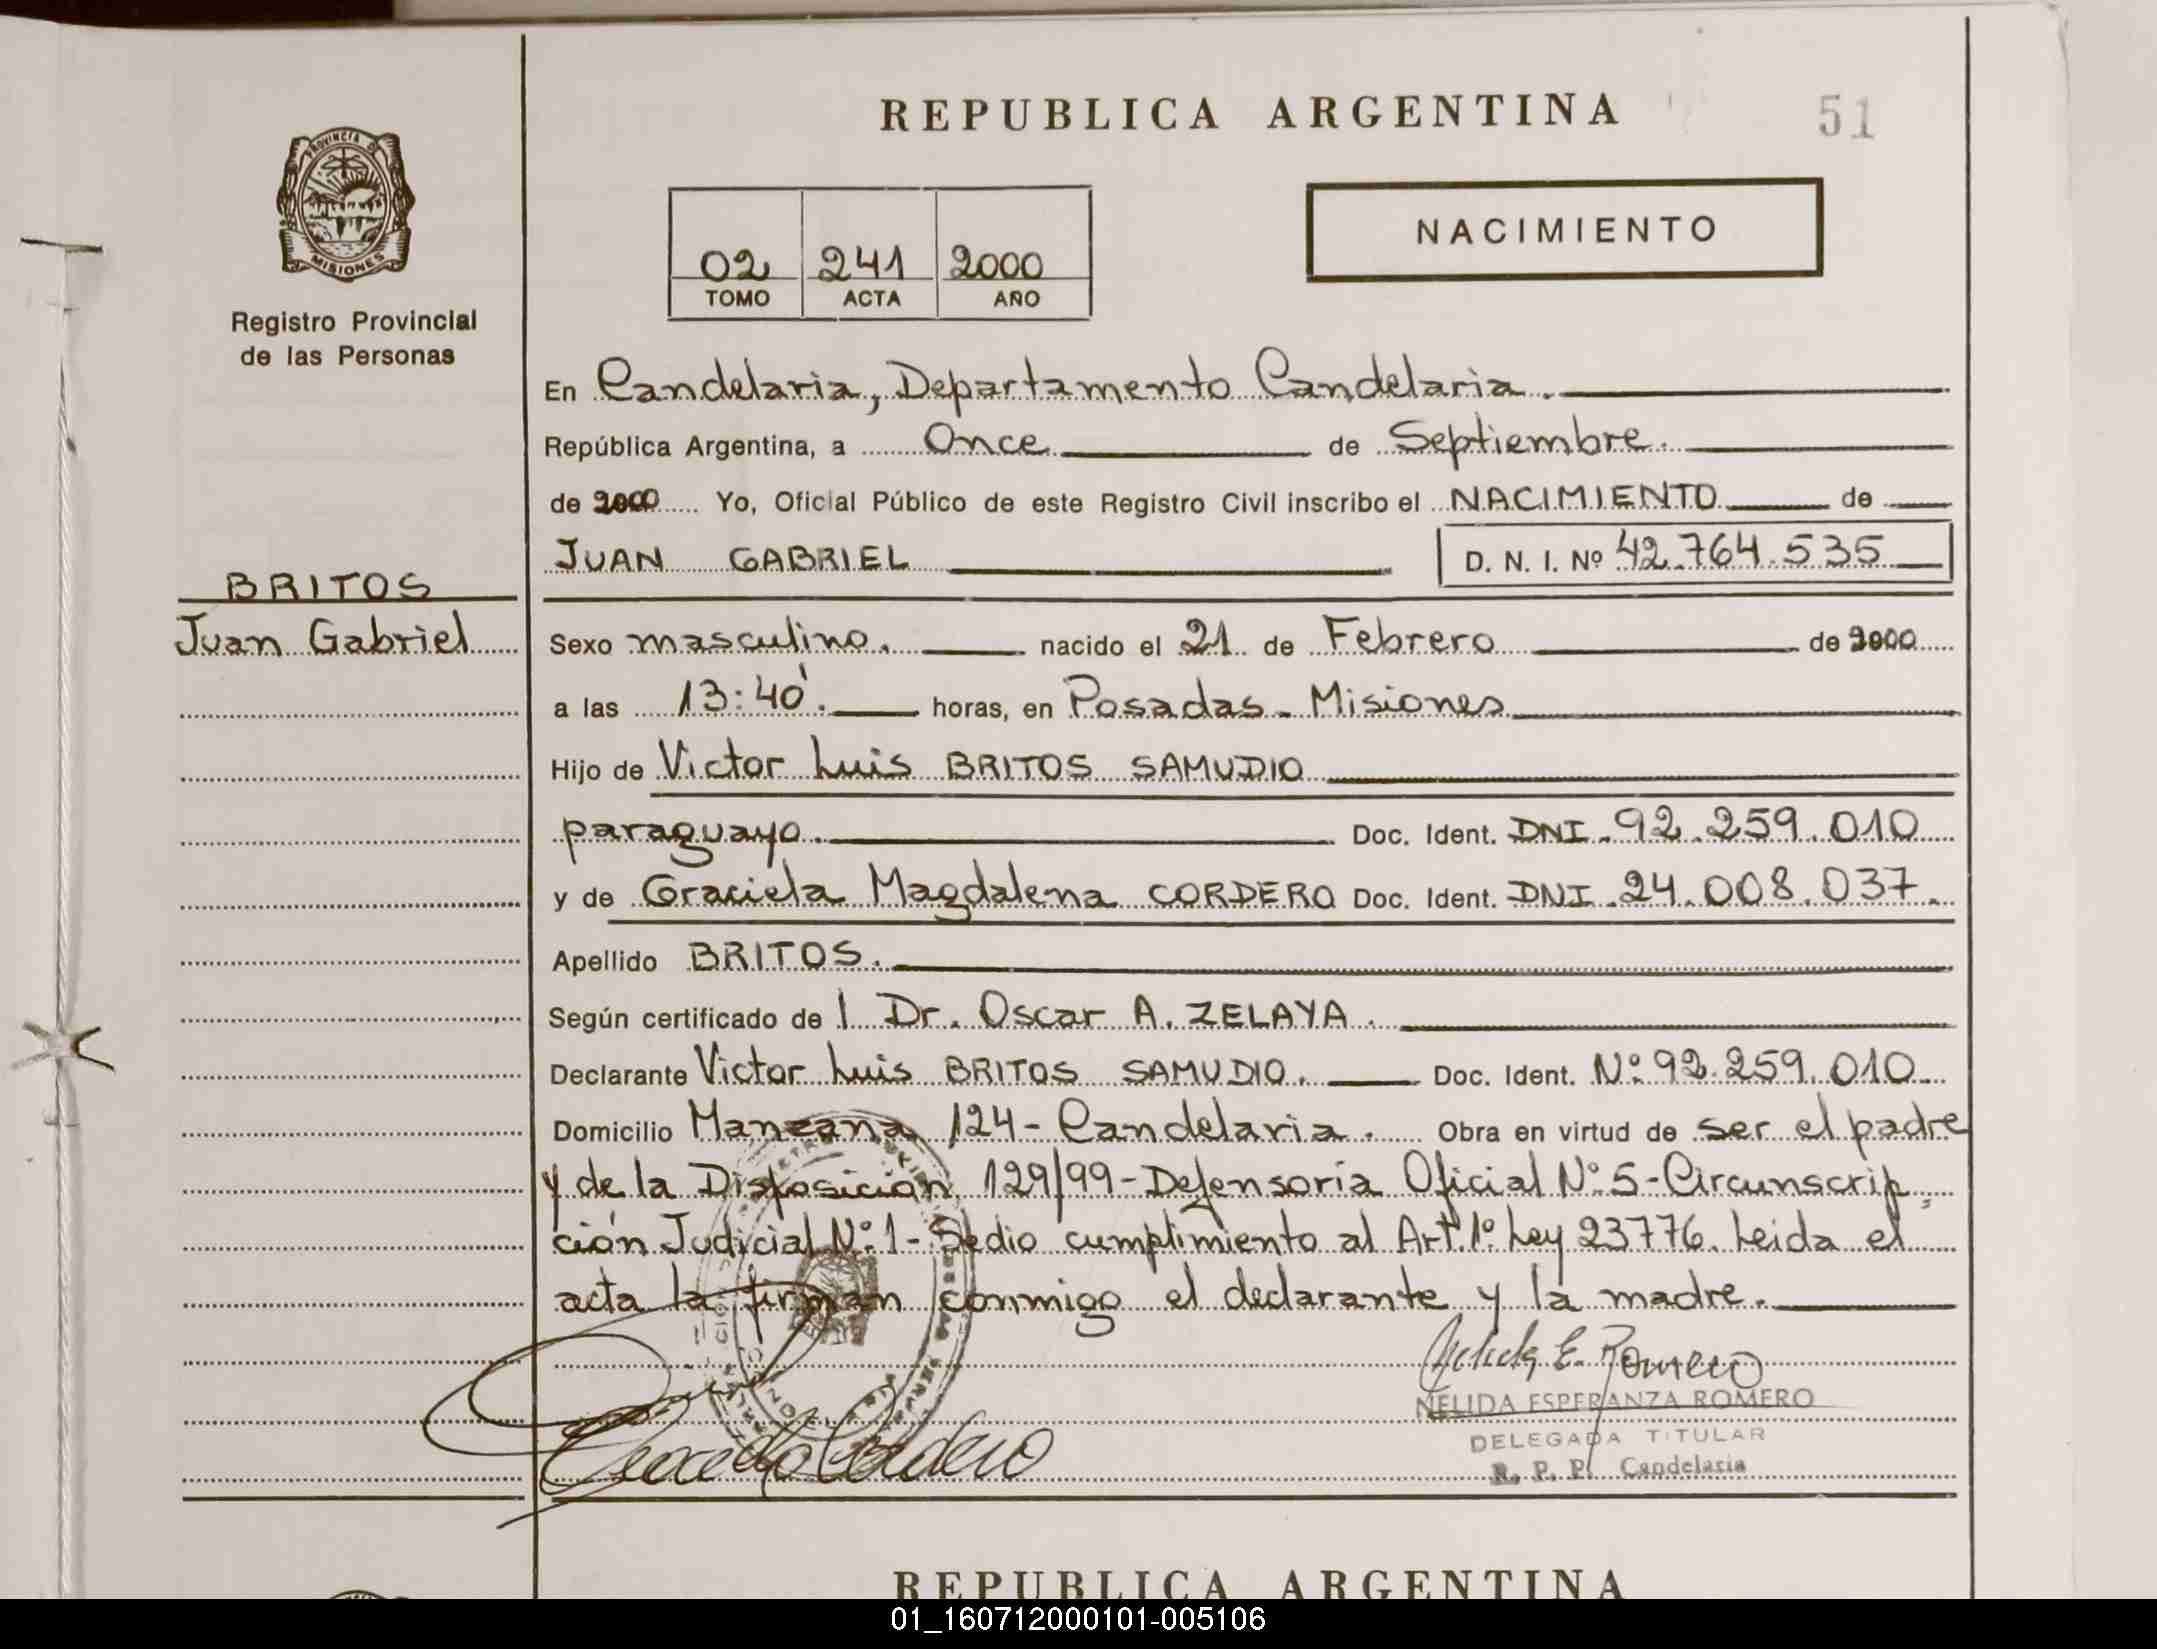 REPUBLICA ARGENTINA
51
PROVINCIA DE
MISIONES
Registro Provincial
de las Personas
02 241 2000
TOMO ACTA AÑO
NACIMIENTO
En Candelaria, Departamento Candelaria.
República Argentina, a Once de Septiembre.
de 2000 Yo, Oficial Público de este Registro Civil inscribo el NACIMIENTO de
JUAN GABRIEL D. N. I. Nº 42.764.535
BRITOS
Juan Gabriel
Sexo masculino. nacido el 21 de Febrero de 2000
a las 13:40'. horas, en Posadas - Misiones
Hijo de Victor Luis BRITOS SAMUDIO
paraguayo. Doc. Ident. DNI. 92.259.010
y de Graciela Magdalena CORDERO Doc. Ident. DNI. 24.008.037.
Apellido BRITOS.
Según certificado de l Dr. Oscar A. ZELAYA.
Declarante Victor Luis BRITOS SAMUDIO. Doc. Ident. Nº 92.259.010
Domicilio Manzana 124 - Candelaria. Obra en virtud de ser el padre
y de la Disposición 129/99 - Defensoría Oficial Nº 5 - Circunscrip
ción Judicial Nº 1 - Sedio cumplimiento al Art. 1º Ley 23776. Leida el
acta la firman conmigo el declarante y la madre.
Nelida E. Romero
NELIDA ESPERANZA ROMERO
DELEGADA TITULAR
R. P. P. Candelaria
Cordero
REPUBLICA ARGENTINA
01_160712000101-005106